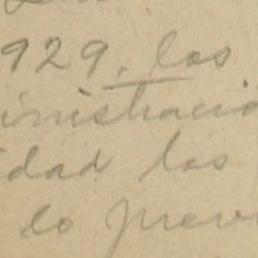 929, los
inistració
idad las
lo prev